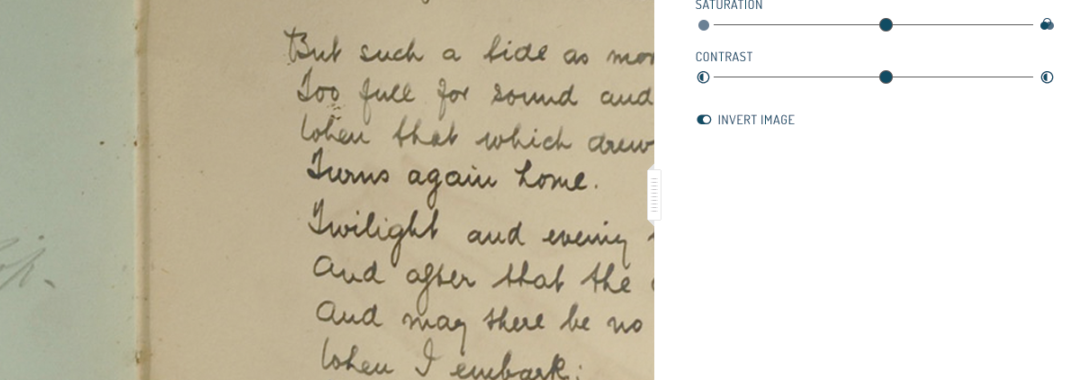 But such a tide as mo
Too full for sound and
When that which drew
Turns again home.
Twilight and evening
And after that the
And may there be no
When I embark;
SATURATION
CONTRAST
INVERT IMAGE